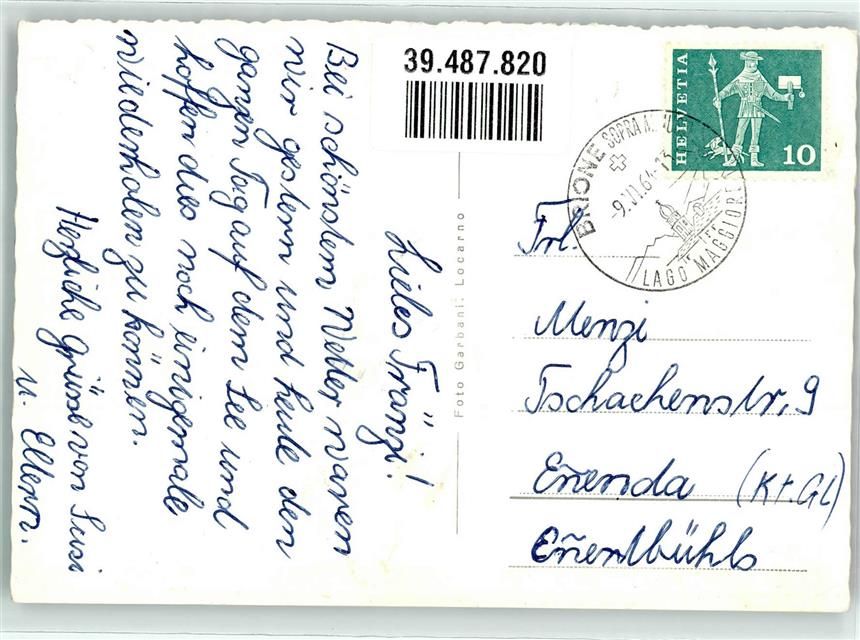 39.487.820
HELVETIA
10
BRIONE SOPRA
-9.VI.64-13
LAGO MAGGIORE
Liebes Fränzi!
Bei schönstem Wetter waren
wir gestern und heute den
ganzen Tag auf dem See und
hoffen dies noch einigemale
wiederholen zu können.
Herzliche Grüsse von Susi
u. Eltern.
Foto Garbani, Locarno
Frl.
Menzi
Tschachenstr, 9
Enenda (Kt. GL)
Enentbühls